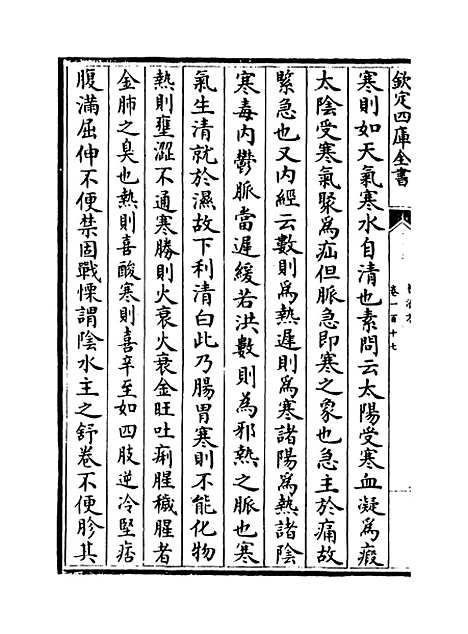 欽定四庫全書
卷一百十七
寒則如天氣寒水自清也素問云太陽受寒血凝為瘕
太陰受寒氣聚為疝但脈急即寒之象也急主於痛故
緊急也又内經云數則為熱遲則為寒諸陽為熱諸陰
寒毒内鬱脈當遲緩若洪數則為邪熱之脈也寒
氣生清就於濕故下利清白此乃腸胃寒則不能化物
熱則壅澀不通寒勝則火衰火衰金旺吐痢腥穢腥者
金肺之臭也熱則喜酸寒則喜辛至如四肢逆冷堅痞
腹滿屈伸不便禁固戰慄謂陰水主之舒卷不便胗其